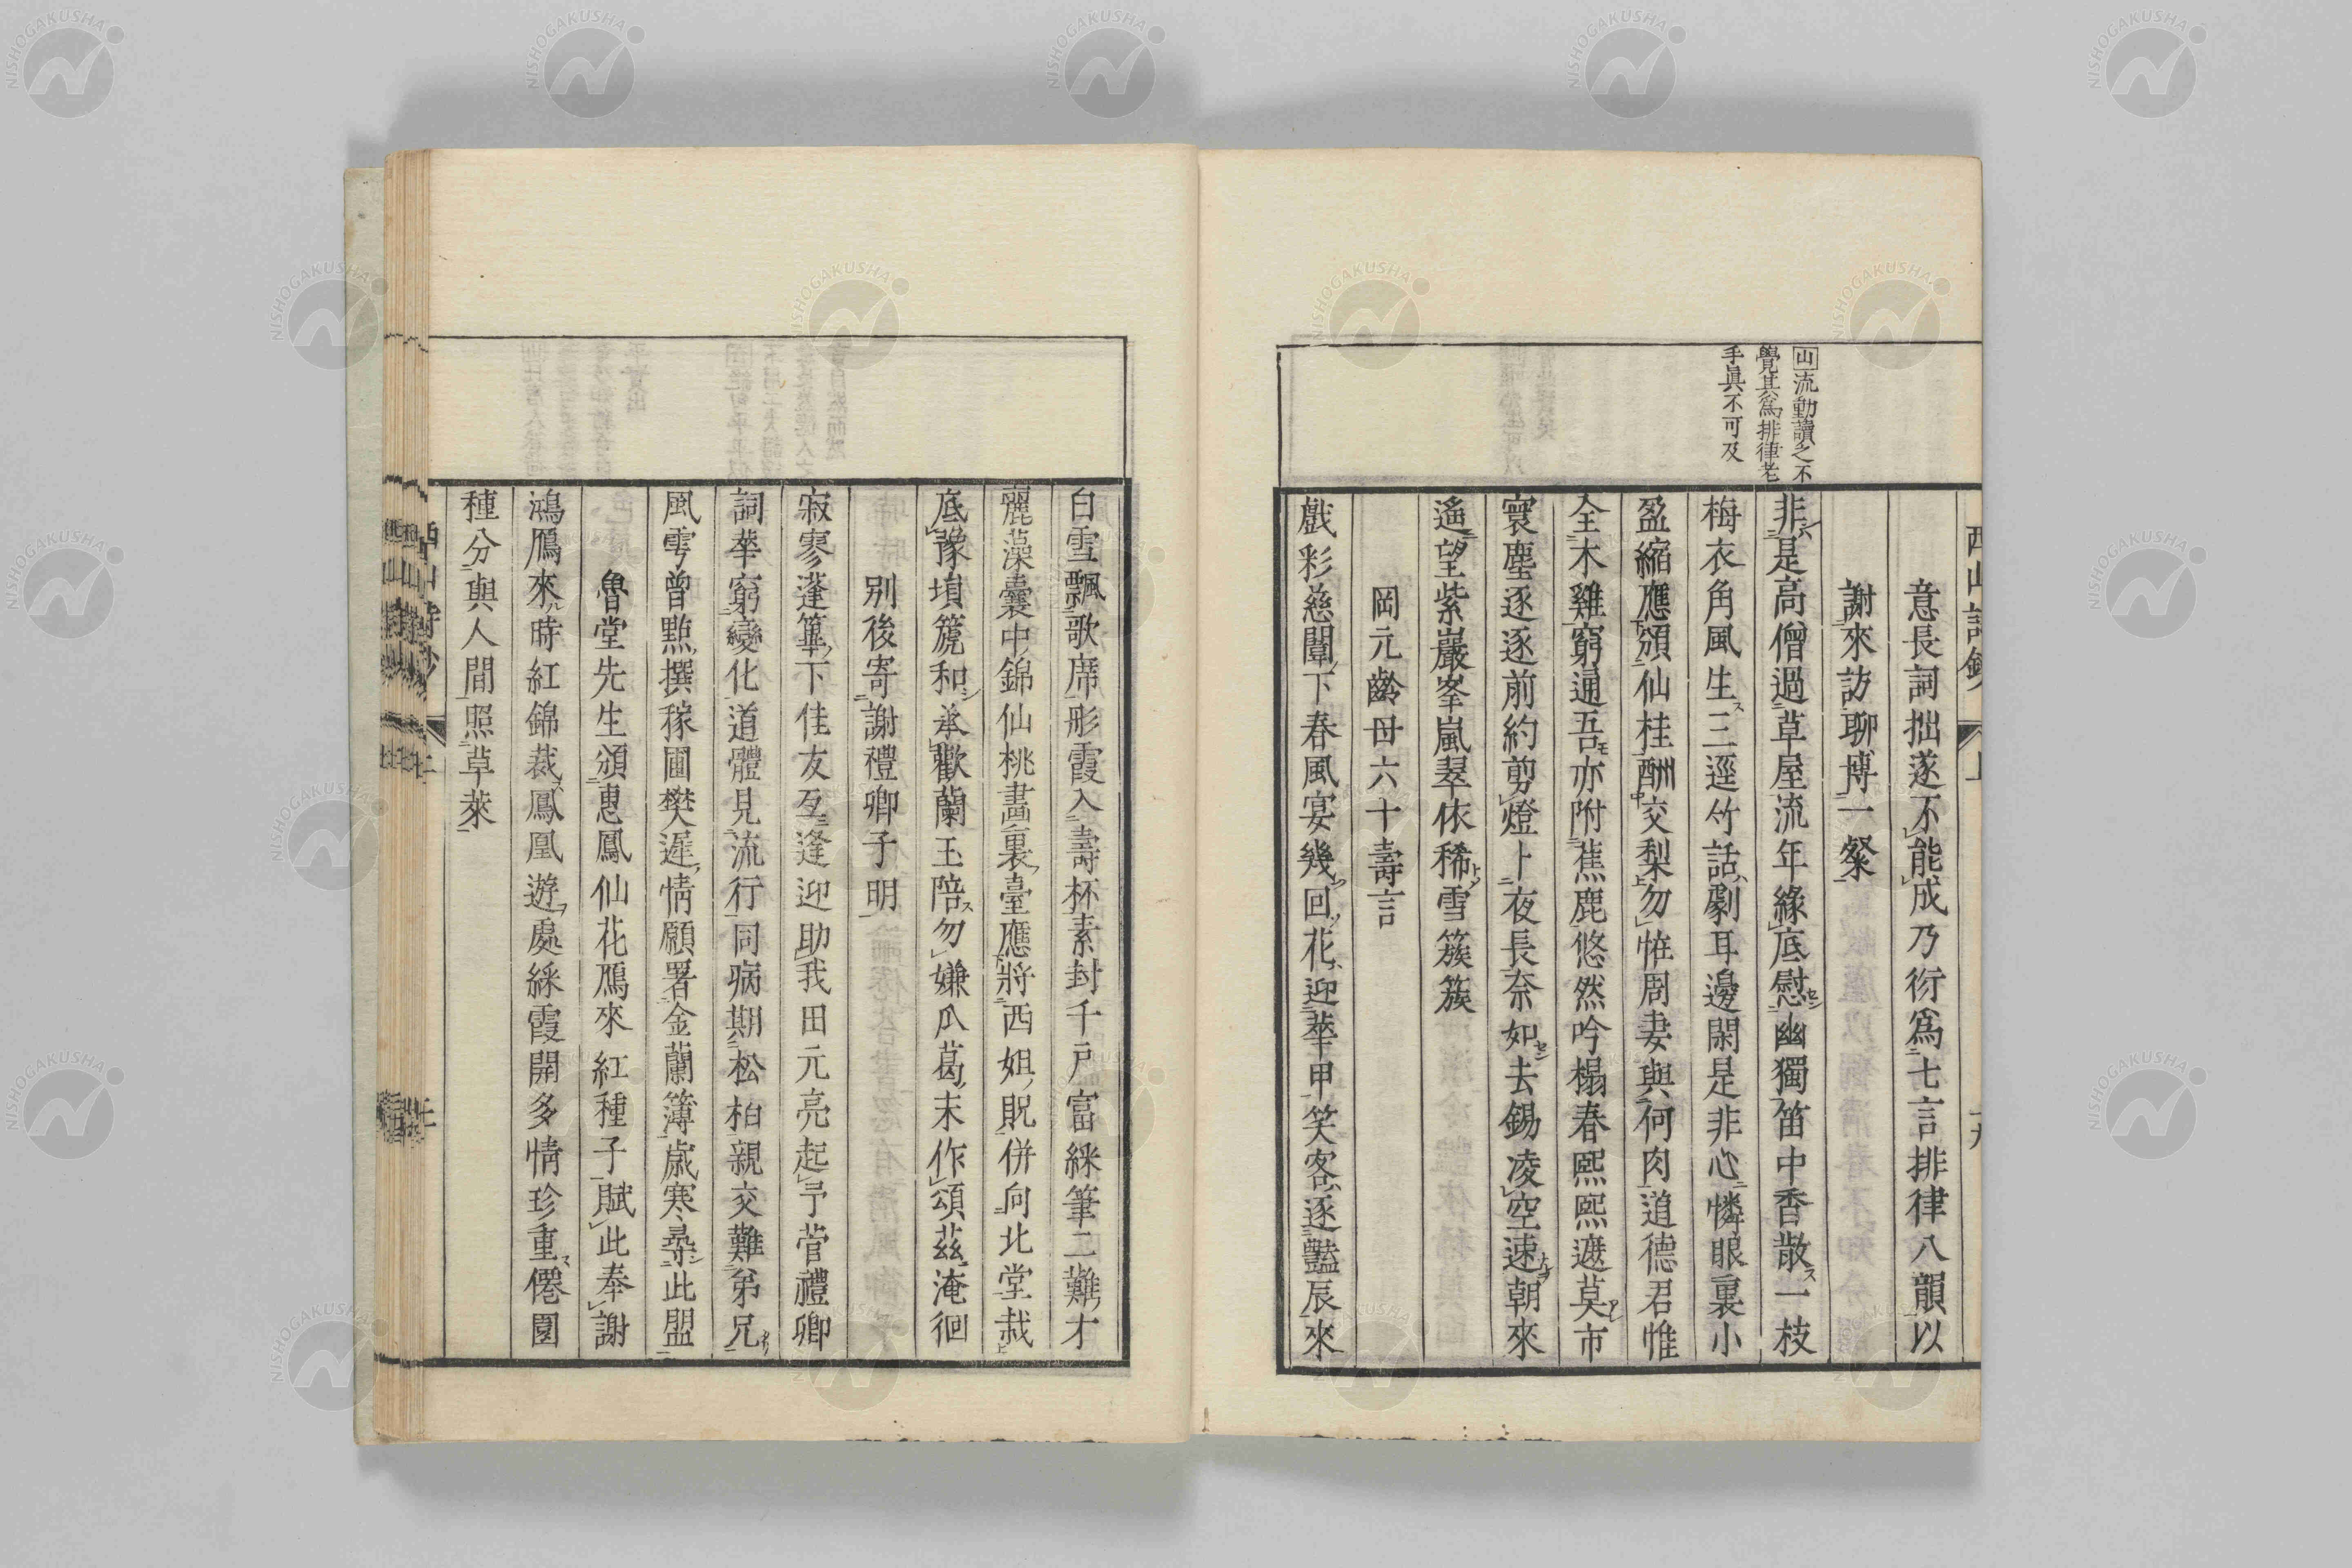 山流動讀之不
覺其爲排律老
手眞不可及
意長詞拙遂不能成乃衍爲七言排律八韻以
謝來訪聊博一粲
非是高僧過草屋流年緣底慰幽獨笛中香散一枝
梅衣角風生三逕竹話劇耳邊閑是非心憐眼裏小
盈縮應頒仙桂酬交梨勿恠周妻與何肉道德君惟
全木雞窮通吾亦附蕉鹿悠然吟榻春熙熙遮莫市
寰塵逐逐前約剪燈卜夜長奈如去錫凌空速朝來
遙望紫巖峯嵐翠依稀雪簇簇
岡元齡母六十壽言
戲彩慈闈下春風宴幾回花迎華甲笑客逐豔辰來
白雪飄歌席彤霞入壽杯素封千戶富綵筆二難才
麗藻囊中錦仙桃畵裏臺應將西姐貺併向北堂栽
底豫塤箎和承歡蘭玉陪勿嫌瓜葛末作頌茲淹徊
別後寄謝禮卿子明
寂寥蓬篳下佳友互逢迎助我田元亮起予菅禮卿
詞華窮變化道體見流行同病期松柏親交難弟兄
風雩曾點撰稼圃樊遲情願署金蘭簿歲寒尋此盟
魯堂先生頒惠鳳仙花鴈來紅種子賦此奉謝
鴻鴈來時紅錦裁鳳凰遊處綵霞開多情珍重僊園
種分與人間照草萊